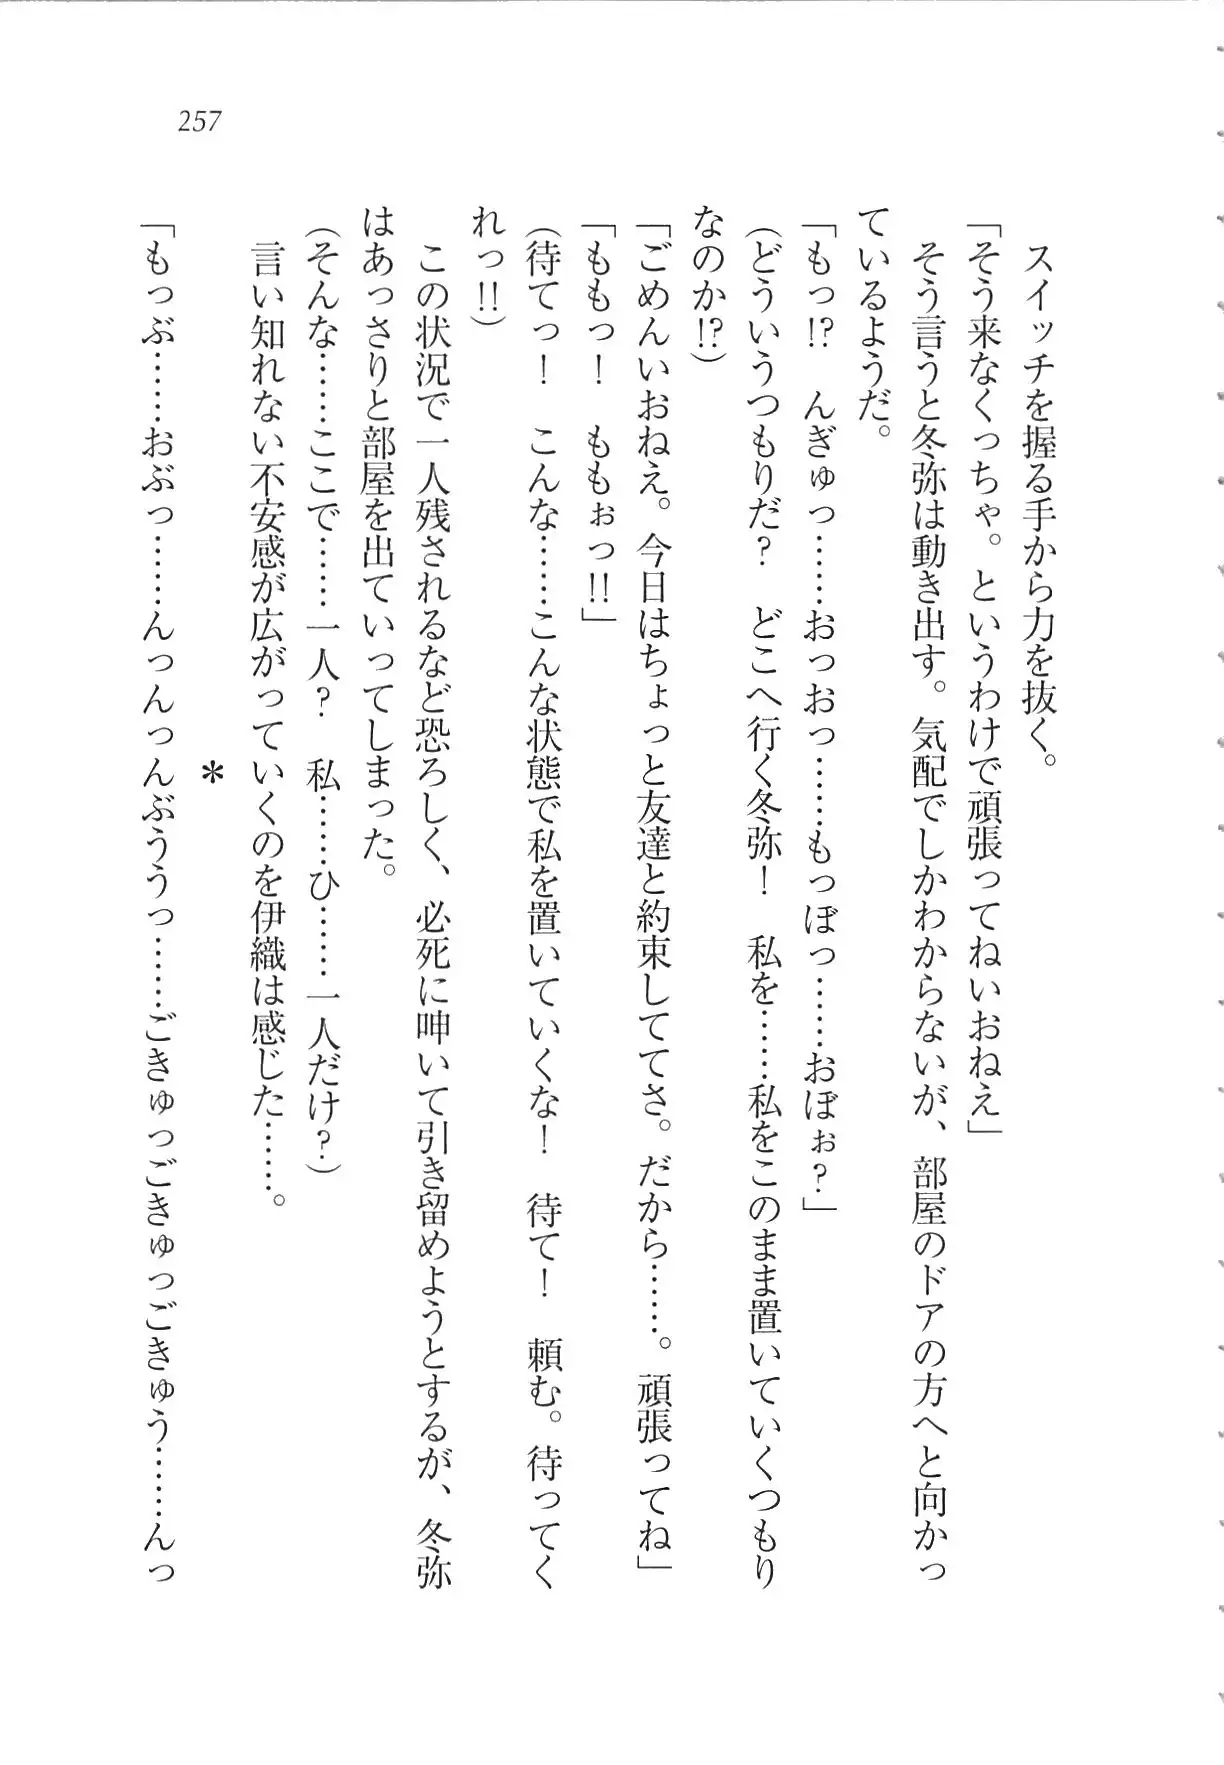 257
スイッチを握る手から力を抜く。
「そう来なくっちゃ。というわけで頑張ってねいおねえ」
そう言うと冬弥は動き出す。気配でしかわからないが、部屋のドアの方へと向かっ
ているようだ。
「もっ!?　んぎゅっ……おっおっ……もっぼっ……おぼぉ?」
(どういうつもりだ?　どこへ行く冬弥!　私を……私をこのまま置いていくつもり
なのか!?)
「ごめんいおねえ。今日はちょっと友達と約束しててさ。だから……。頑張ってね」
「ももっ!　ももぉっ!!」
(待てっ!　こんな……こんな状態で私を置いていくな!　待て!　頼む。待ってく
れっ!!)
この状況で一人残されるなど恐ろしく、必死に呻いて引き留めようとするが、冬弥
はあっさりと部屋を出ていってしまった。
(そんな……ここで……一人?　私……ひ……一人だけ?)
言い知れない不安感が広がっていくのを伊織は感じた……。
*
「もっぶ……おぶっ……んっんっんぶううっ……ごきゅっごきゅっごきゅう……んっ